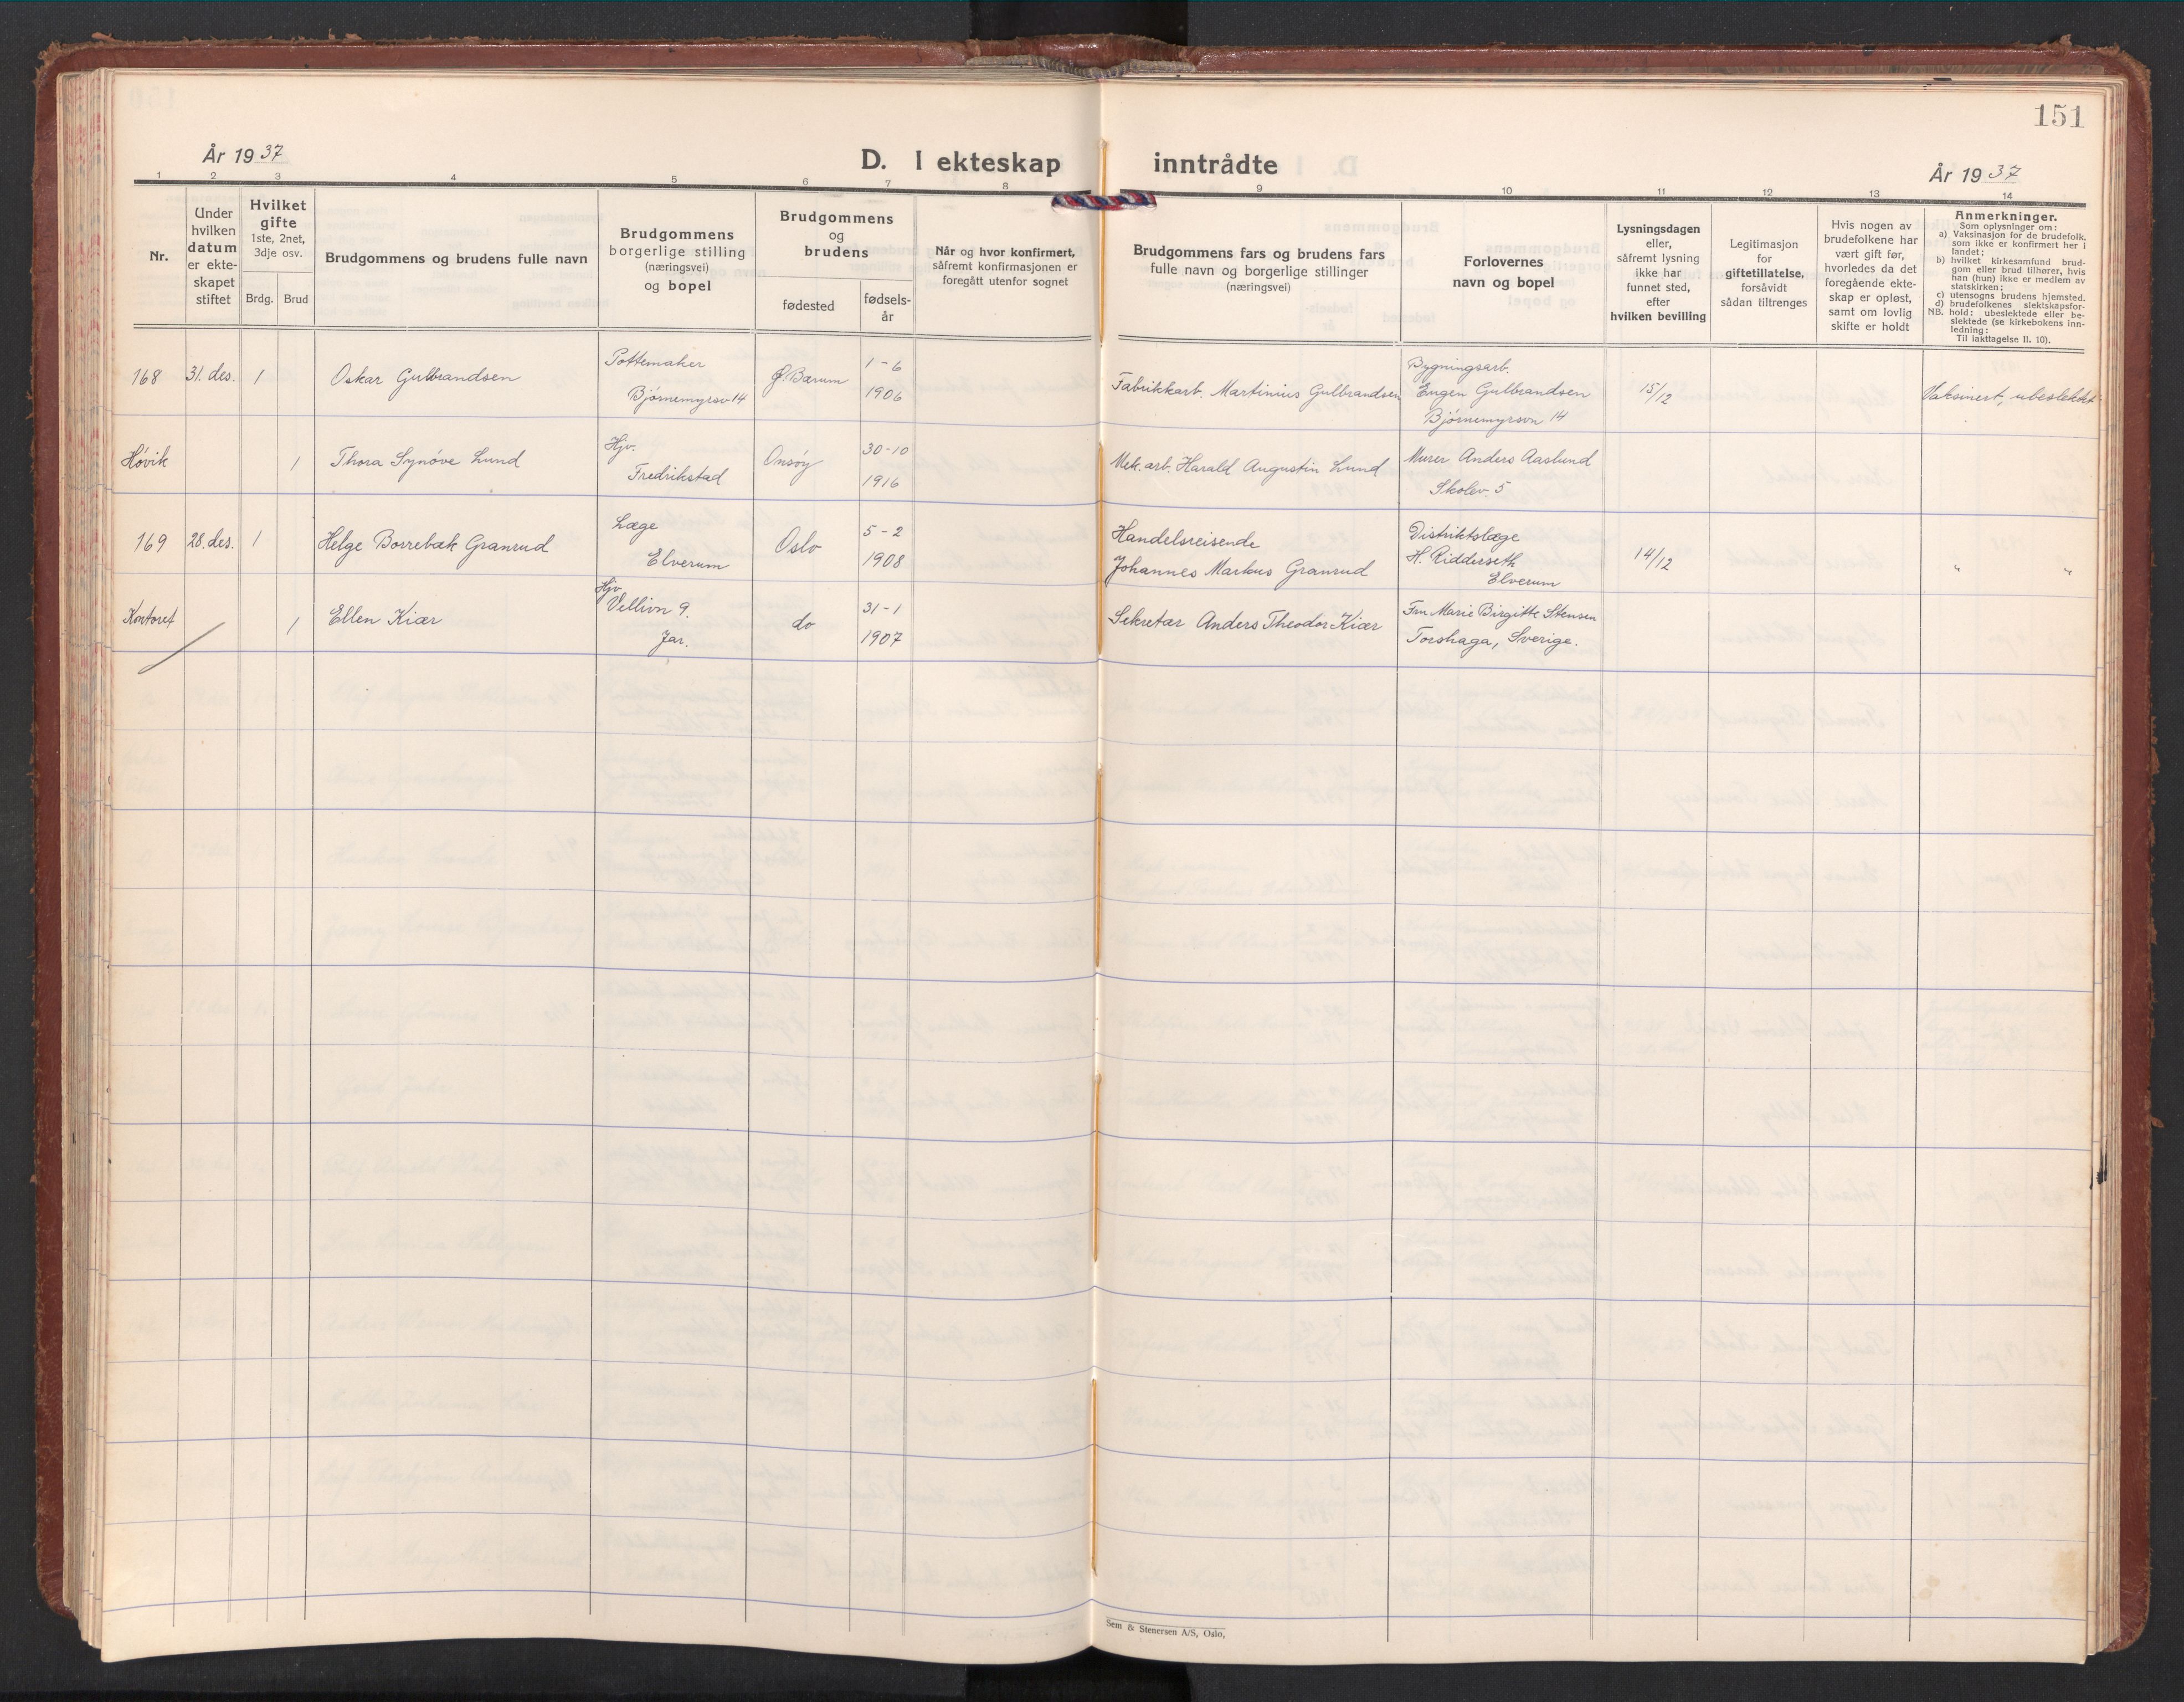 151
År 1937
D. I ekteskap inntrådte
År 1937
1 2 3 4 5 6 7 8 9 10 11 12 13 14
Nr.
Under
hvilken
datum
er ekte-
skapet
stiftet
Hvilket
gifte
1ste, 2net,
3dje osv.
Brdg. Brud
Brudgommens og brudens fulle navn
Brudgommens
borgerlige stilling
(næringsvei)
og bopel
Brudgommens
og
brudens
fødested
fødsels-
år
Når og hvor konfirmert,
såfremt konfirmasjonen er
foregått utenfor sognet
Brudgommens fars og brudens fars
fulle navn og borgerlige stillinger
(næringsvei)
Forlovernes
navn og bopel
Lysningsdagen
eller,
såfremt lysning
ikke har
funnet sted,
efter
hvilken bevilling
Legitimasjon
for
giftetillatelse,
forsåvidt
sådan tiltrenges
Hvis nogen av
brudefolkene har
vært gift før,
hvorledes da det
foregående ekte-
skap er opløst,
samt om lovlig
skifte er holdt
Anmerkninger.
Som oplysninger om:
a) Vaksinasjon for de brudefolk.
som ikke er konfirmert her i
landet;
b) hvilket kirkesamfund brud-
gom eller brud tilhører, hvis
han (hun) ikke er medlem av
statskirken;
c) utensogns brudens hjemsted.
d) brudefolkenes slektskapsfor-
NB. hold: ubeslektede eller be-
slektede (se kirkebokens inn-
ledning:
Til iakttagelse II. 10).
168 31. des. 1 Oskar Gulbrandsen
Pottemaker
Bjørnemyrsv 14
Ø. Bærum
1-6
1906
Fabrikkarb. Martinius Gulbrandsen
Bygningsarb.
Eugen Gulbrandsen
Bjørnemyrsvn 14
15/12
Vaksinert, ubeslektet
Høvik 1 Thora Synøve Lund
Hjv.
Fredrikstad
Onsøy
30-10
1916
Mek. arb. Harald Augustin Lund
Murer Anders Aaslund
Skolev. 5
169 28. des. 1 Helge Borrebæk Granrud
Læge
Elverum
Oslo
5-2
1908
Handelsreisende
Johannes Markus Granrud
Distriktslæge
H. Ridderseth
Elverum
14/12
" "
Kontoret 1 Ellen Kiær
Hjv
Vellivn 9.
Jar.
do
31-1
1907
Sekretær Anders Theodor Kiær
Fru Marie Birgitte Stensen
Torshaga, Sverige.
Sem & Stenersen A/S, Oslo,